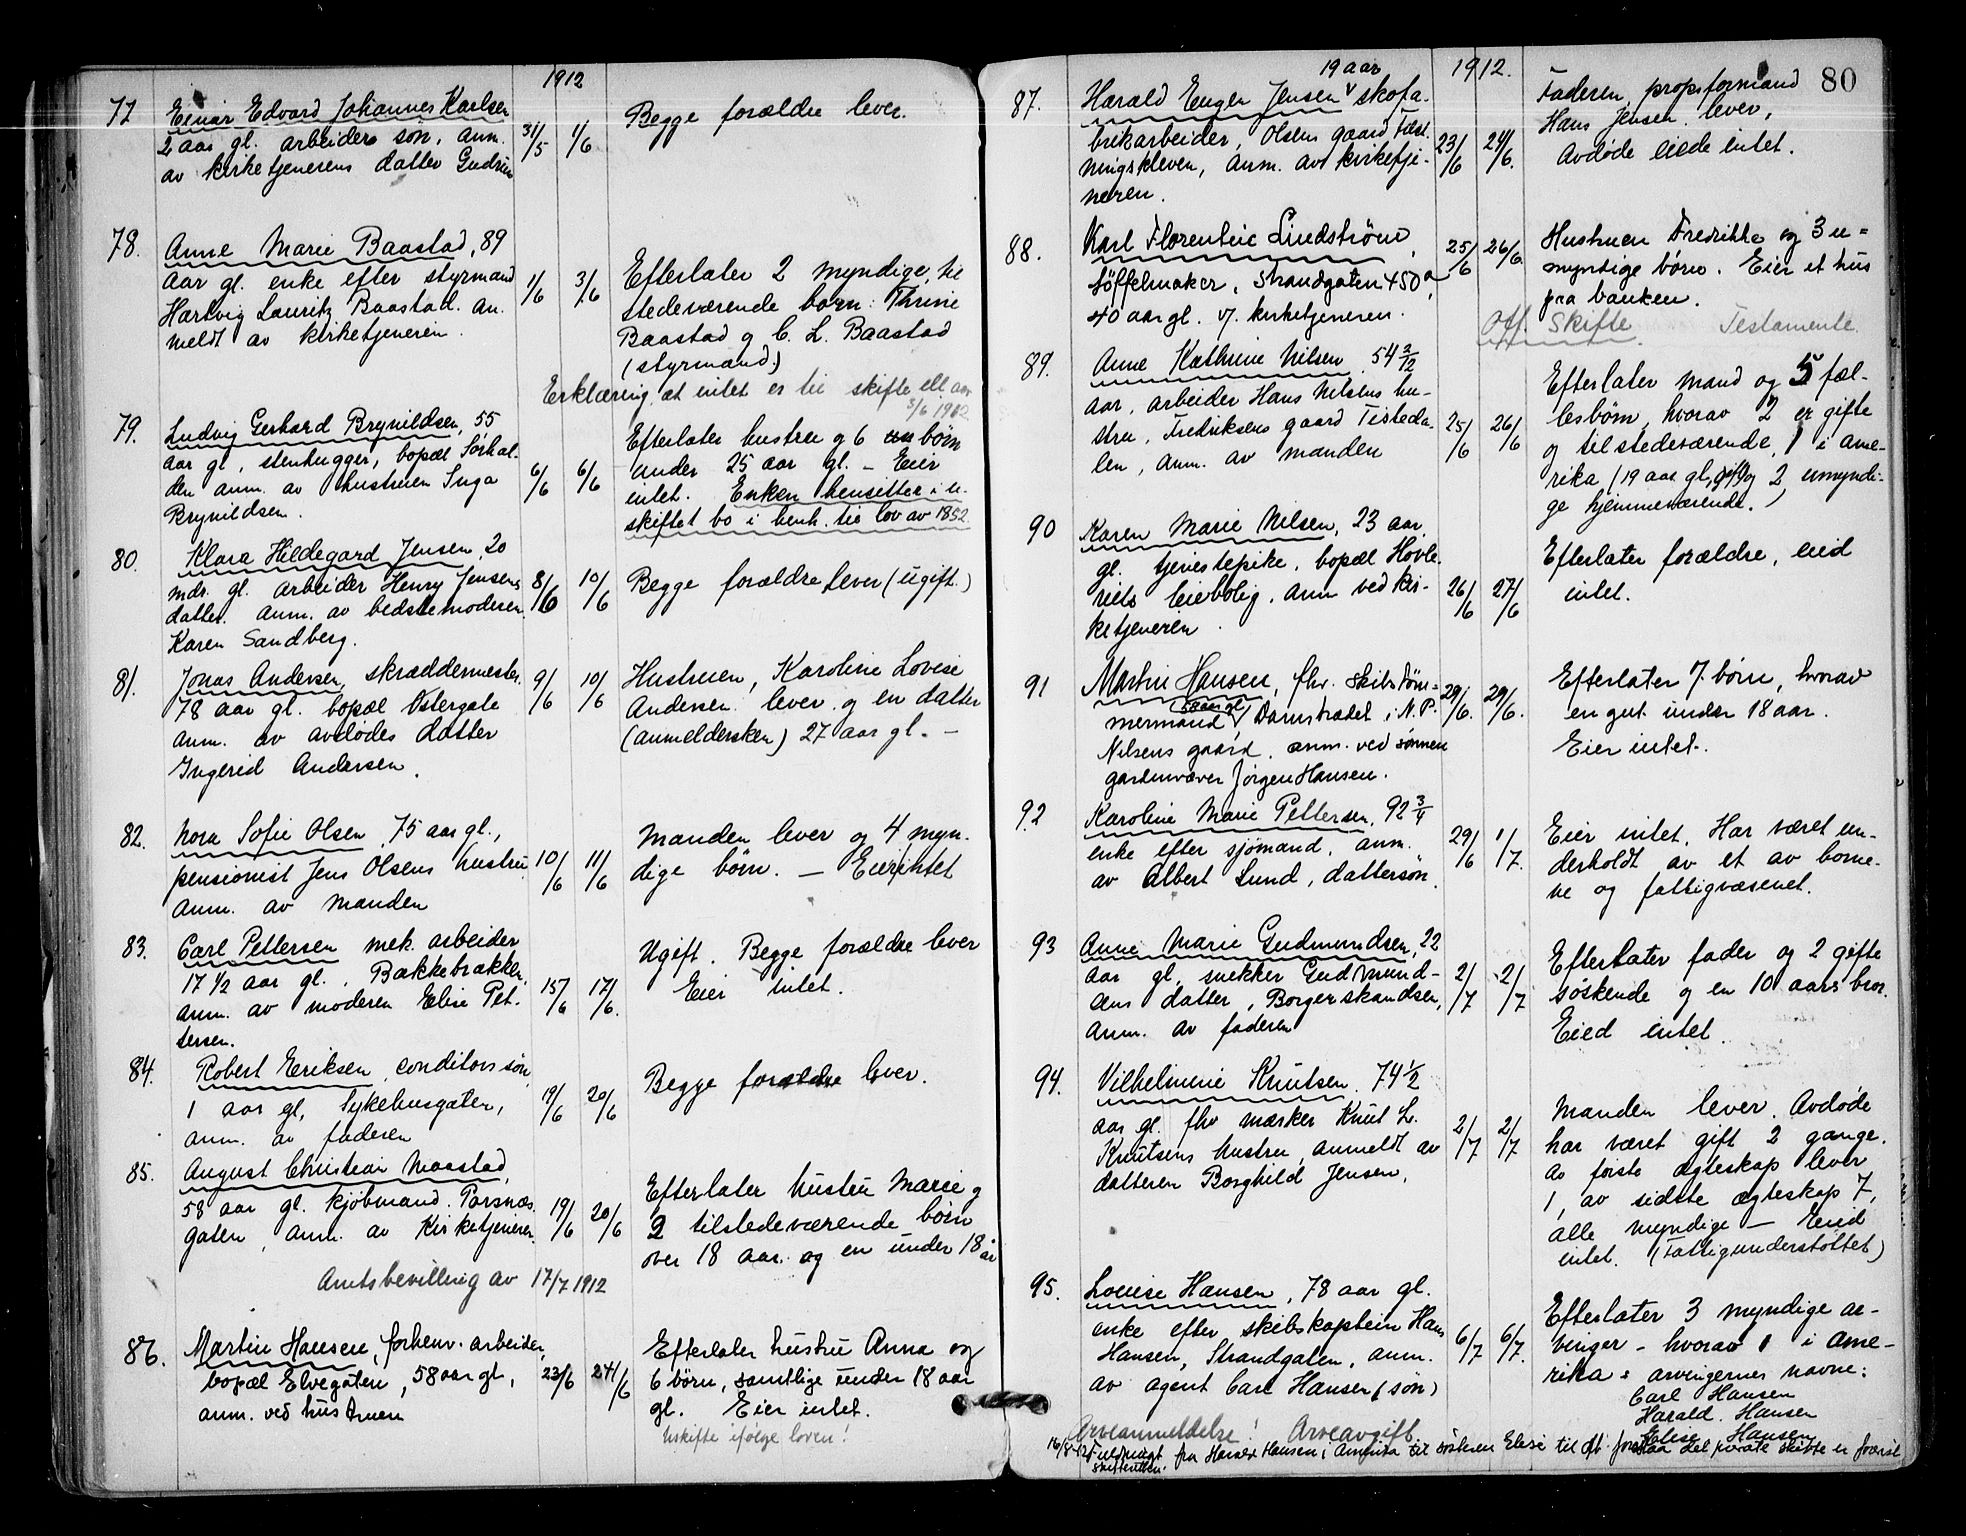 1912
77 Einar Edvard Johannes Karlsen
2 aar gl. arbeiders søn, anm.
av kirketjenerens datter Gudrun
31/5 1/6
Begge forældre lever.
78. Anne Marie Baastad, 89
aar gl. enke efter styrmand
Hartvig Lauritz Baastad. an-
meldt av kirketjeneren.
1/6 3/6
Efterlater 2 myndige, til
stedeværende børn: Thrine
Baastad og C. L. Baastad
(styrmand)
Erklæring at intet er til skifte ell. arv
3/6 1912
79. Ludvig Gerhard Brynildsen, 55
aar gl, stenhugger, bopæl Sørhal-
den anm. av hustruen Inga
Brynildsen.
6/6 6/6
Efterlater hustru og 6 børn
under 25 aar gl. - Eier
intet. Enken hensitter i u-
skiftet bo i henh. til lov av 1852.
80. Klara Hildegard Jensen, 20
mdr. gl. arbeider Henry Jensens
datter. anm. av bedstemoderen
Karen Sandberg.
8/6 10/6
Begge forældre lever (ugift.)
81. Jonas Andersen, skræddermester.
78 aar gl. bopæl Østergate
anm. av avdødes datter
Ingerid Andersen.
9/6 10/6
Hustruen, Karoline Lovise
Andersen lever og en datter
(anmeldersken) 27 aar gl. -
82. Nora Sofie Olsen, 75 aar gl.,
pensionist Jens Olsens hustru
anm. av manden
10/6 11/6
Manden lever og 4 myn-
dige børn. - Eier intet
83. Carl Pettersen mek. arbeider
17 1/2 aar gl., Bækkebrakken,
anm. av moderen Elise Pet-
tersen.
15/6 17/6.
Ugift. Begge forældre lever
Eier intet.
84. Robert Eriksen, conditors søn,
1 aar gl, Sykehusgaten,
anm. av faderen
19/6 20/6
Begge forældre lever.
85. August Christian Maastad,
58 aar gl. kjøbmand. Porsnæs
gaten, anm. av Kirketjeneren
19/6 20/6
Efterlater hustru Marie og
2 tilstedeværende børn
over 18 aar. og en under 18 år
Amtsbevilling av 17/7 1912
86. Martin Hansen, forhenv. arbeider,
bopæl Elvegaten, 58 aar gl,
anm. ved hustruen
23/6 24/6
Efterlater hustru Anna og
6 børn, samtlige under 18 aar
gl. Eier intet.
Uskifte ifølge loven!
80
1912.
19 aar
87. Harald Eugen Jensen skofa-
brikarbeider, Olsens gaard Fæst-
ningskleven, anm. av kirketje-
neren.
23/6 24/6.
Faderen, propsformand
Hans Jensen lever,
Avdøde eiede intet.
88. Karl Florentin Lindstrøm,
Søffelmaker, Strandgaten 450 a,
40 aar gl. v/. kirketjeneren.
25/6 26/6.
Hustruen Fredrikke og 3 u=
myndige børn. Eier et hus
paa banken.
Off. Skifte. Testamente.
89. Anne Kathrine Nilsen, 54 2/12
aar, arbeider Hans Nilsens hu-
stru, Fredriksens gaard Tisteda-
len, anm. av manden
25/6 26/6
Efterlater mand og 5 fæl-
lesbørn, hvorav 2 er gifte
og tilstedeværende, 1 i Ame-
rika (19 aar gl., og 2 umyndi-
ge hjemmeværende.)
90 Karen Marie Nilsen, 23 aar
gl. tjenestepike, bopæl Høvle-
riets leiebolig. anm ved kir-
ketjeneren.
26/6 27/6
Efterlater forældre, eied
intet.
91 Martin Hansen, fhv. skibstøm=
mermand, Damstrædet i N. P.
Nilsens gaard, anm. ved sønnen
garnvæver Jørgen Hansen.
29/6. 29/6.
Efterlater 7 børn, hvorav
en gut under 18 aar.
Eier intet.
92 Karoline Marie Pettersen, 92 3/4
enke efter sjømand, anm.
av Albert Lund, dattersøn.
29/6 1/7.
Eier intet. Har været un-
derholdt av et av børne-
ne og fattigvæsenet.
93 Anne Marie Gudmundsen, 22
aar gl, snekker Gudmund-
sens datter, Borgerskandsen,
anm. av faderen
2/7 2/7
Efterlater fader og 2 gifte
søskende og en 10 aars bror.
Eied intet.
94. Vilhelmine Knutsen, 74 1/2
aar gl. fhv mærker Knut L.
Knutsens hustru, anmeldt av
datteren Borghild Jensen,
2/7 2/7
Manden lever. Avdøde
har været gift 2 gange.
Av første ægteskap lever
1, av sidste ægteskap 7,
alle myndige - Eied
intet. (Fattigunderstøttet)
95. Louise Hansen, 78 aar gl.
enke efter skibskaptein Hans
Hansen, Strandgaten, anm.
av agent Carl Hansen (søn)
6/7 6/7.
Efterlater 3 myndige ar-
vinger - hvorav 1 i Ame-
rika: arvingernes navne:
Carl Hansen
Harald. Hansen
Elise Hansen
Arveanmeldelse! Arveavgift
16/8-12 Fuldmagt fra Harald Hansen i Amerika til søsteren Elise til at forestaa det private skifte er forevist
skifteretten.